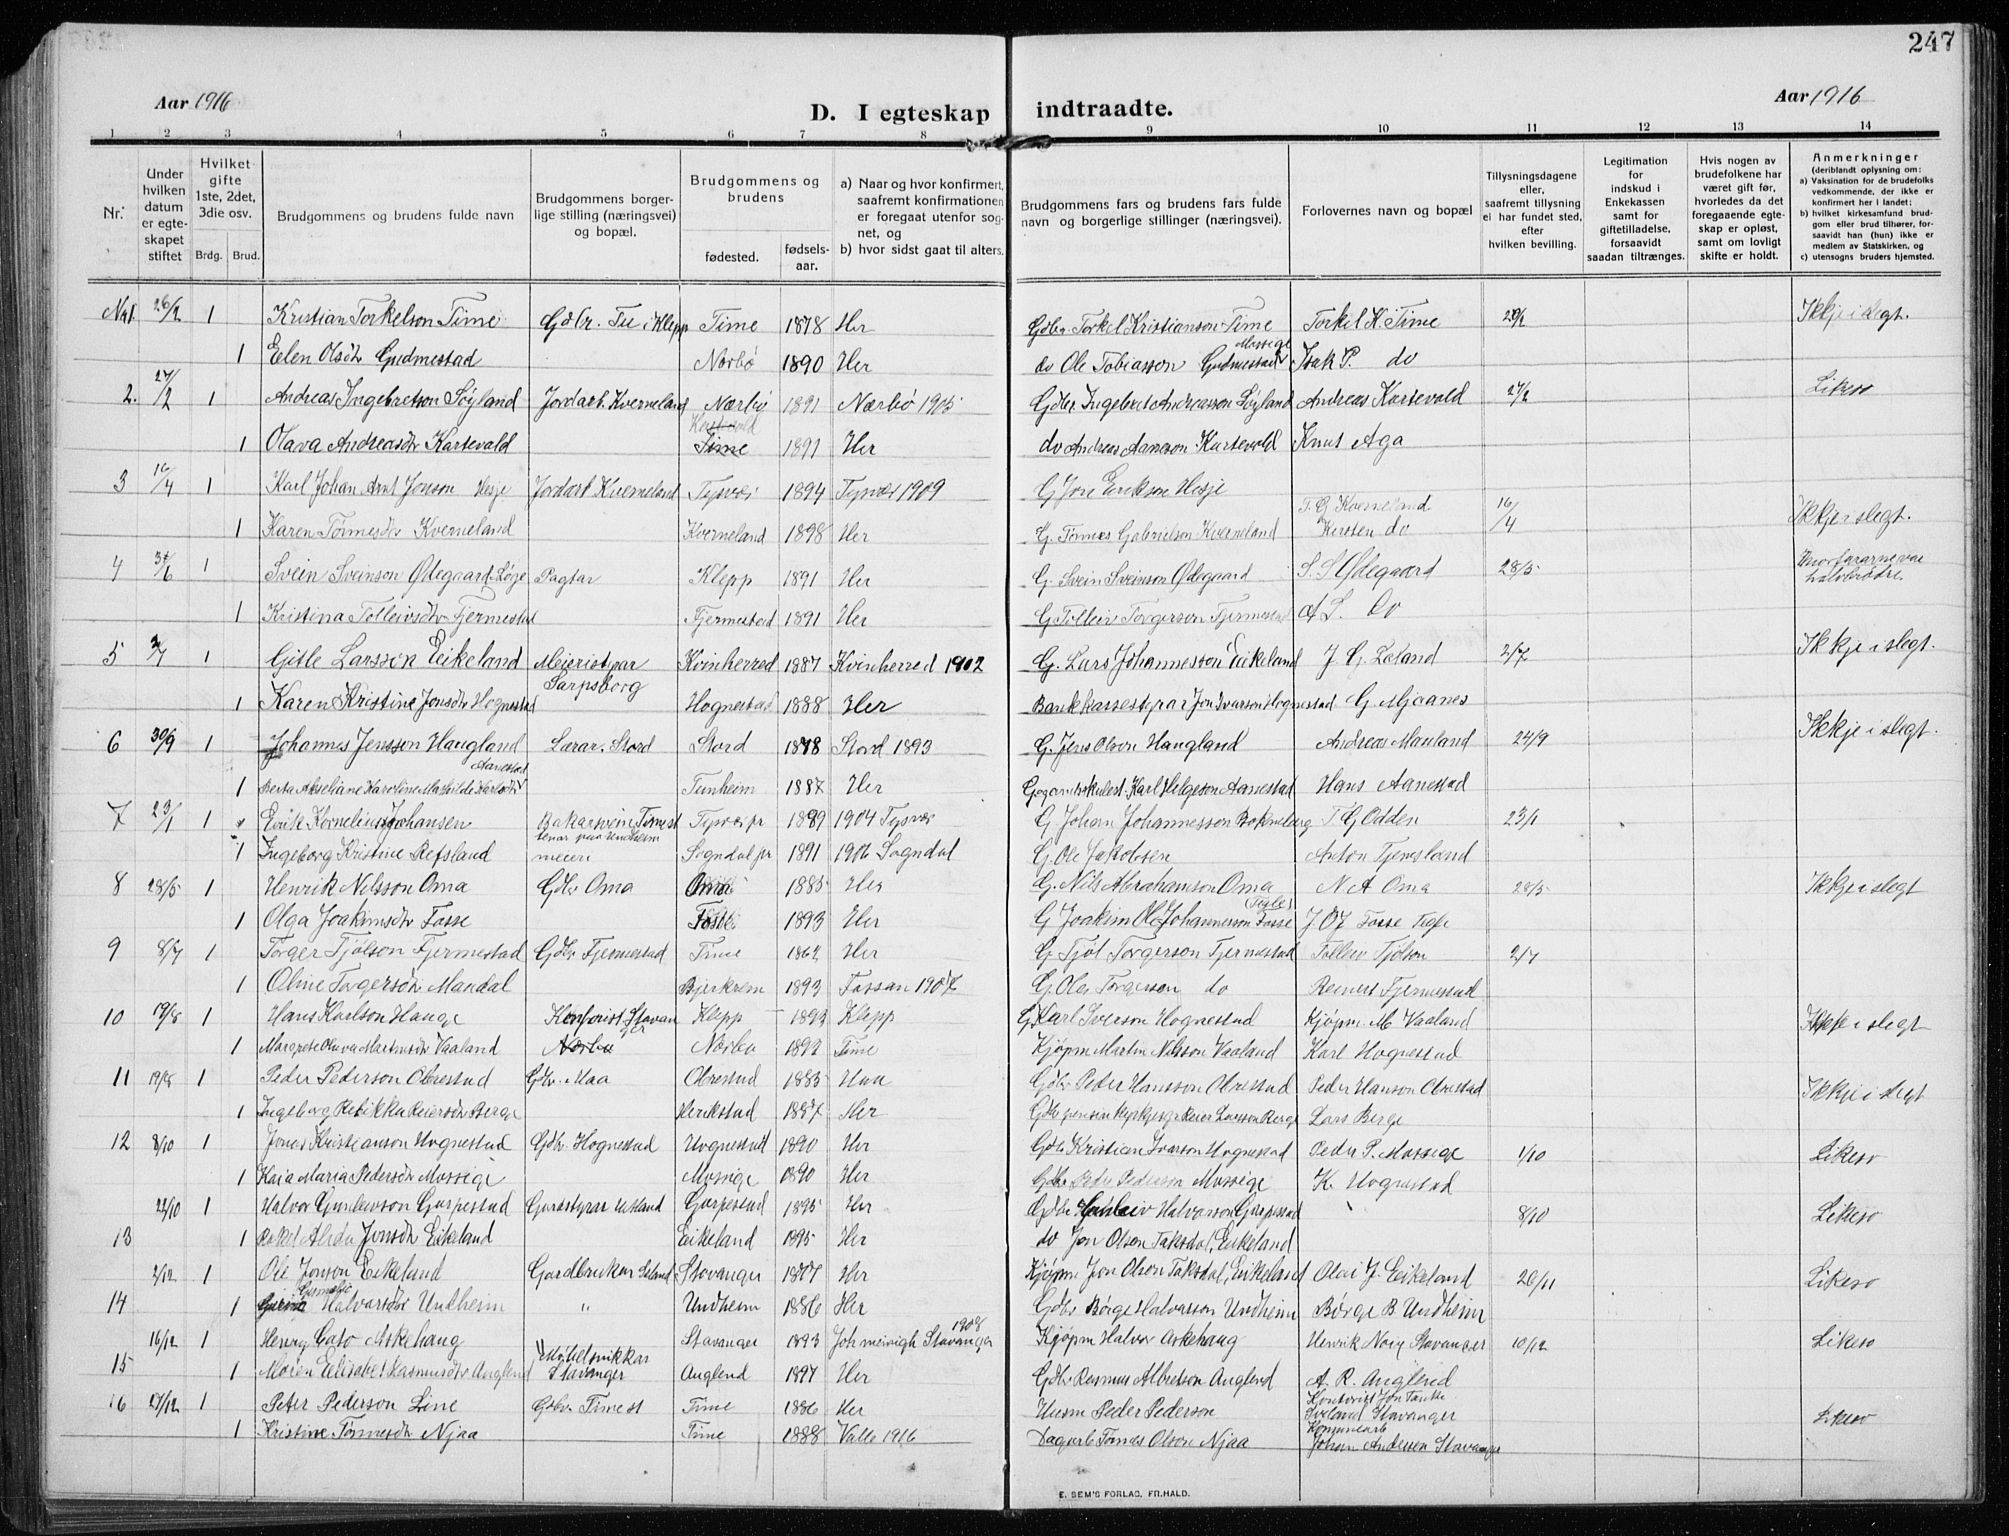 247
Aar 1916
D. I egteskap indtraadte.
Aar 1916
1 2 3 4 5 6 7 8 9 10 11 12 13 14
Nr.
Under hvilken datum er egteskapet stiftet
Hvilket gifte 1ste, 2det, 3die osv.
Brdg. Brud.
Brudgommens og brudens fulde navn
Brudgommens borgerlige stilling (næringsvei) og bopæl.
Brudgommens og brudens
fødested.
fødselsaar.
a) Naar og hvor konfirmert, saafremt konfirmationen er foregaat utenfor sognet, og
b) hvor sidst gaat til alters.
Brudgommens fars og brudens fars fulde navn og borgerlige stillinger (næringsvei).
Forlovernes navn og bopæl
Tillysningsdagene eller, saafremt tillysning ei har fundet sted, efter hvilken bevilling.
Legitimation for indskud i Enkekassen samt for giftetilladelse, forsaavidt saadan tiltrænges.
Hvis nogen av brudefolkene har været gift før, hvorledes da det foregaaende egteskap er opløst, samt om lovligt skifte er holdt.
Anmerkninger (deriblandt oplysning om:
a) Vaksination for de brudefolks vedkommende, der ikke er konfirmert her i landet;
b) hvilket kirkesamfund brudgom eller brud tilhører, forsaavidt han (hun) ikke er medlem av Statskirken, og
c) utensogns bruders hjemsted.
No 1. 26/2 1 Kristian Torkelson Time Gdbr. Tu i Klepp Time 1878 Her Gdbr Torkel Kristianson Time Torkel K. Time Ikkje i slegt.
1 Elen Olsdtr Gudmestad Nærbø 1890 Her do Ole Tobiasson Gudmestad Mossige Isak P. do
2. 27/2 1 Andreas Ingebretson Søyland Jordarb. Kverneland Nærbø 1891 Nærbø 1905 Gdbr Ingebret Andreasson Søyland Andreas Kartevold 27/2 Likeso
1 Olava Andreasdtr Kartevold Time 1891 Her do Andreas Aanenson Kartevold Knut Aga
3 16/4 1 Karl Johan Arnt Jonson Hesje Jordarb Kverneland Tysvær 1894 Tysvær 1909 G Jon Erikson Hesje
1 Karen Tørresdtr Kverneland Kverneland 1898 Her G. Tørres Gabrielson Kverneland T. G Kverneland Kersten do 16/4 Ikkje i slegt.
4 1 Svein Sveinson Ødegaard Løge Pagtar Klepp 1891 Her G. Svein Sveinson Ødegaard S. S Ødegaard 28/5 halvbrødre.
1 Kristina Tolleivsdtr Fjermestad Fjermestad 1891 Her G Tolleiv Torgerson Fjermestad A S. Do
5 2/7 1 Gitle Larsson Eikeland Meieristyrar Sarpsborg Kvinherred 1887 Kvinherred 1902 G. Lars Johannesson Eikeland J. G. Leland 2/7 Ikkje i slegt.
1 Karen Kristine Jonsdtr Hognestad Hognestad 1888 Her Bankkassestyrar Jon Ivarson Hognestad G. Mjaanes
6 30/9 1 Johannes Jensson Haugland Lærar, Stord Stord 1878 Stord 1893 G. Jens Olson Haugland Andreas Mauland 24/9 Ikkje i slegt.
1 Berta Akseliane Karoline Mathilde Karlsdtr Aanestad Tunheim 1887 Her Karl Helgeson Aanestad Hans Aanestad
7 23/1 1 Erik Kornelius Johansen Bakarsvein Timest Tysvær pr 1889 1904 Tysvær G. Johan Johannesson Bokneberg T G Odden 23/1
1 Ingeborg Kristine Refsland tenar paa Undheim meieri Sogndal pr 1891 1906 Sogndal G. Ole Jakobsen Anton Fjermland
8 28/5 1 Henrik Nilsson Oma Gdbr Oma Oma 1885 Her G. Nils Abrahamson Oma N A Oma 28/5 Ikkje i slegt
1 Olga Joakimsdtr Fosse Fosse 1893 Her G Joakim Ole Johannesson Fosse J O J Fosse
9 8/7 1 Torger Tjølson Fjermestad Gdbr Fjermestad Time 1862 Her G Tjøl Torgerson Fjermestad Tolleiv Tjølson 2/7
1 Oline Torgersdtr Mandal Bjerkrem 1893 Fossan 1907 G Ole Torgerson do Reinert Fjermestad
10 19/8 1 Hans Karlson Hauge Kontorist Stavanger Klepp 1893 Klepp G Karl Iverson Hognestad Kjøpm M Vaaland Ikkje i slegt
1 Margrete Olava Martinsdtr Vaaland Nærbø Nærbø 1893 Time Kjøpm Martin Nilsson Vaaland Karl Hognestad
11 19/8 1 Peder Pederson Obrestad Gdbr. Haa Obrestad 1885 Haa Gdbr Peder Hansson Obrestad Peder Hanson Obrestad Ikkje i slegt
1 Ingeborg Rebikka Reiersdtr Berge Herikstad 1887 Her Reier Larsson Berge Lars Berge
12 8/10 1 Jonas Kristianson Hognestad Gdbr Hognestad Hognestad 1890 Her Gdbr Kristian Ivarson Hognestad Peder P. Mossige 1/10 Likeso
1 Kaia Maria Pedersdtr Mossige Mossige 1890 Her Gdbr Peder Pederson Mossige K. Hognestad
22/10 1 Halvor Gunleivson Garpestad Gardstyrar Garpestad 1895 Her Gdbr Gunleiv Halvorson Garpestad 8/10 Likeso
13 1 Rakel Alida Jonsdtr Eikeland Eikeland 1895 Her do Jon Olson Taksdal, Eikeland
2/12 1 Ole Jonson Eikeland Gardbrukar Stavanger 1887 Her Kjøpm Jon Olson Taksdal, Eikeland Olai J. Eikeland 26/11 Likeso
14 1 Halvarsdtr Undheim " Undheim 1886 Her Gdbr Børge Halvarsson Undheim Børge B. Undheim
16/12 1 Henry Cato Askehaug Møbelsnikkar Stavanger Stavanger 1893 Stavanger 1908 Kjøpm Halvor Askehaug Henrik Stavanger 10/12 Likeso
15 1 Maren Elisabet Rasmusdtr Anglend Anglend 1897 Her Gdbr Rasmus Albretson Anglend A. R. Anglend
16 27/12 1 Peter Pederson Line Gdbr Timest Time 1886 Her Husm Peder Pederson Kontorist Jon Stavanger Likeso
1 Kristine Tørresdtr Njaa Time 1888 Valle 1916 Dagarb Tørres Olson Njaa Johan Andersen Stavanger
E. SEM'S FORLAG, FR.HALD.